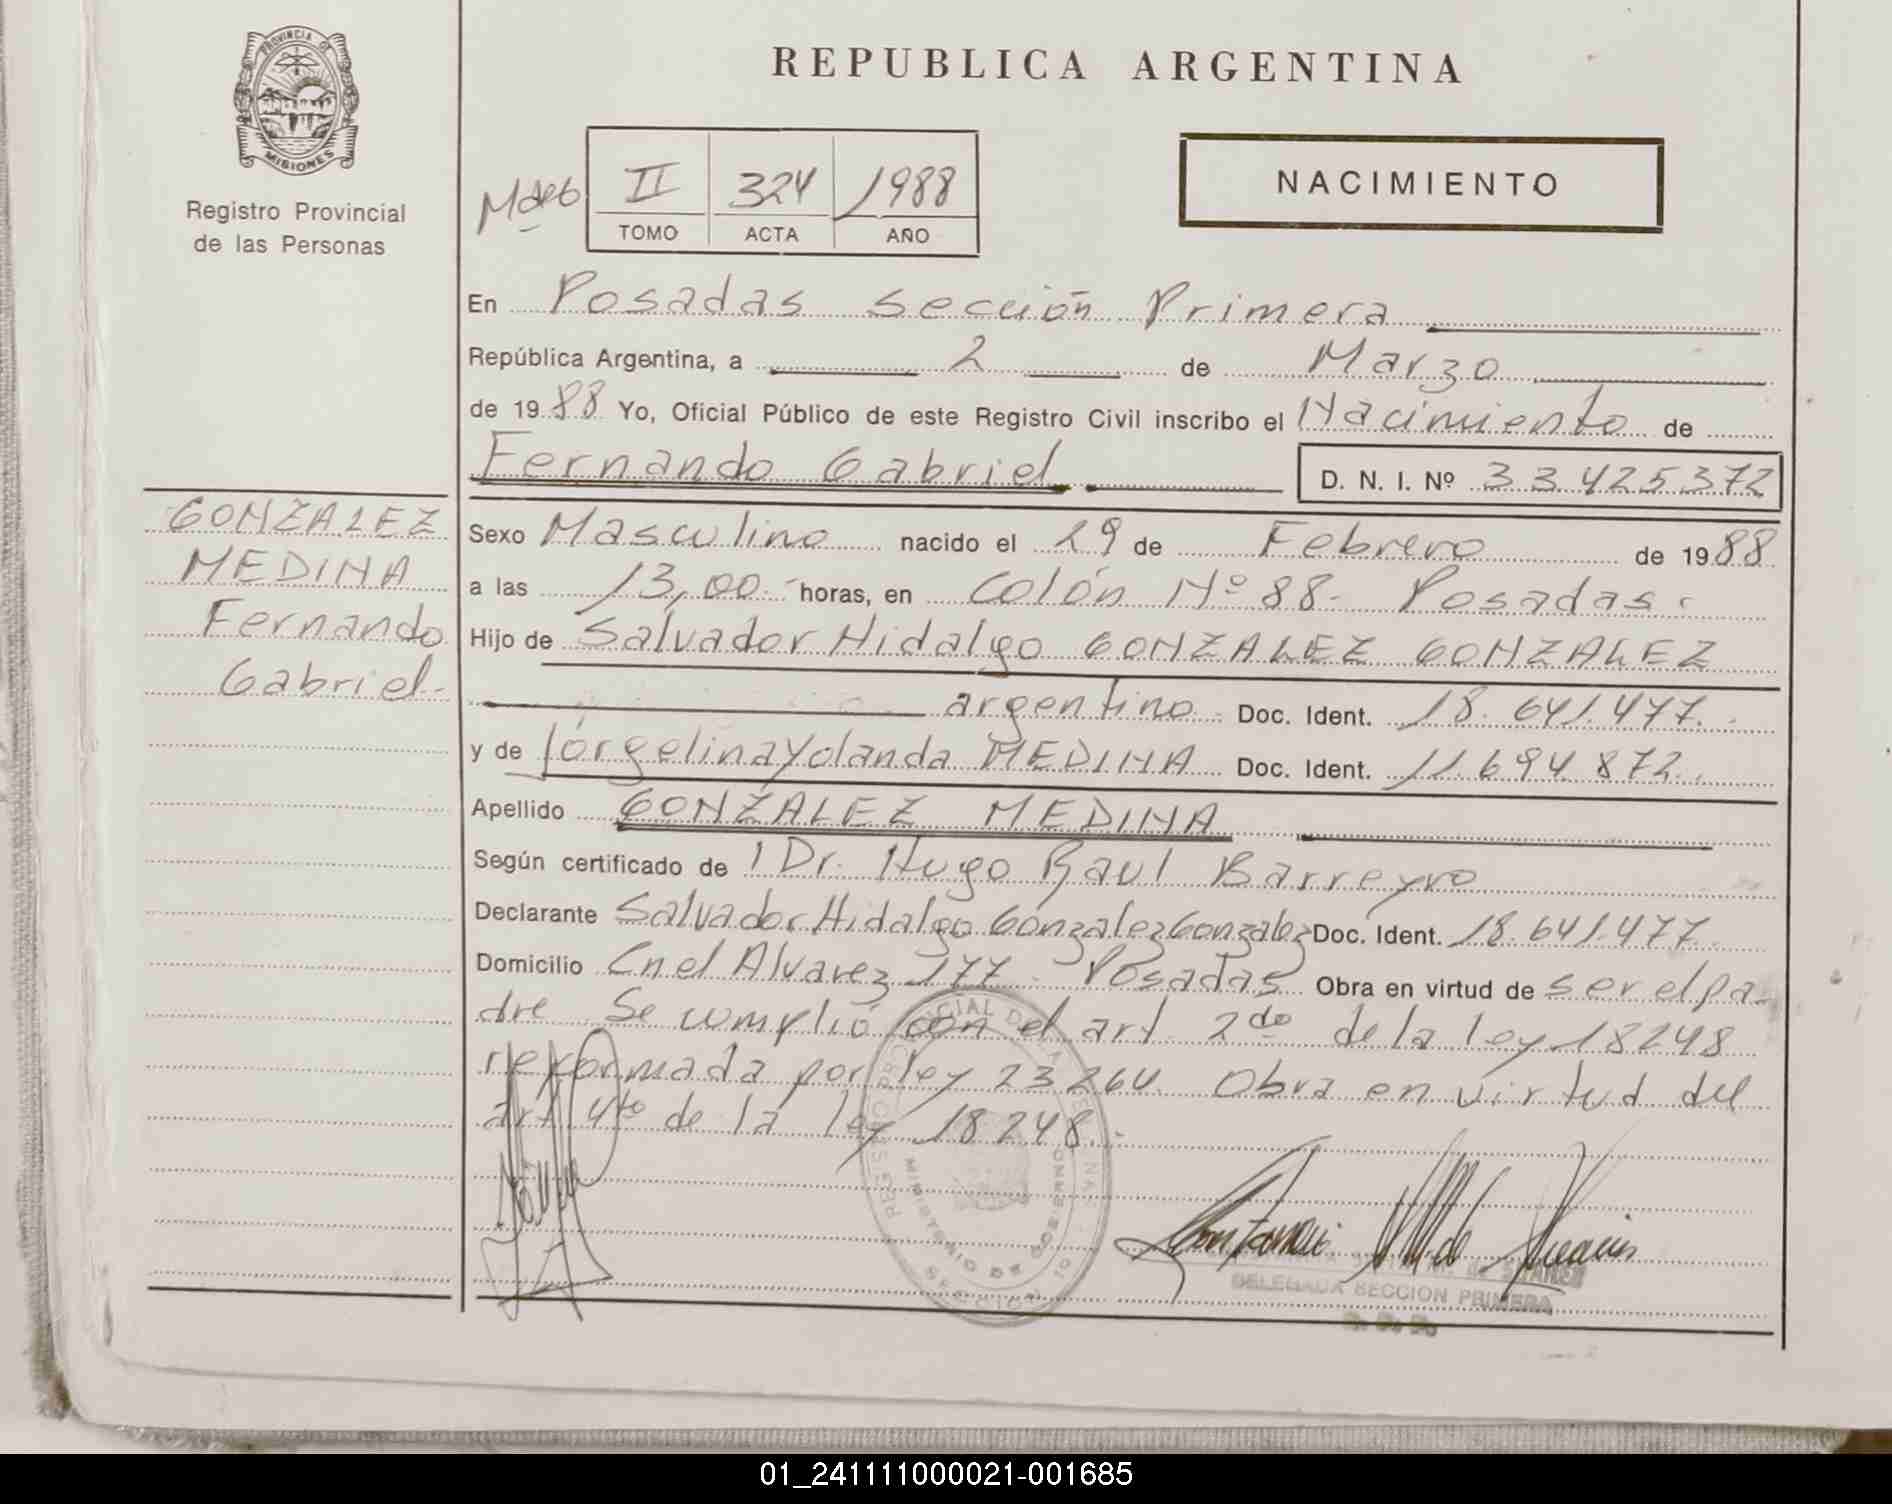 PROVINCIA DE
MISIONES
Registro Provincial
de las Personas
REPUBLICA ARGENTINA
II 324 1988
TOMO ACTA AÑO
NACIMIENTO
En Posadas Sección Primera
República Argentina, a 2 de Marzo
de 1988 Yo, Oficial Público de este Registro Civil inscribo el Nacimiento de
Fernando Gabriel D. N. I. Nº 33425372
GONZALEZ
MEDINA
Fernando
Gabriel.-
Sexo Masculino nacido el 29 de Febrero de 1988
a las 13,00.- horas, en Colón Nº 88- Posadas.
Hijo de Salvador Hidalgo GONZALEZ GONZALEZ
argentino Doc. Ident. 18.641.477.
y de Jorgelina Yolanda MEDINA Doc. Ident. 11.694.872.
Apellido GONZALEZ MEDINA
Según certificado de Dr. Hugo Raul Barreyro
Declarante Salvador Hidalgo Gonzalez Gonzalez Doc. Ident. 18.641.477.
Domicilio Cnel Alvarez 177. Posadas Obra en virtud de ser el pa-
dre Se cumplió con el art 2do de la ley 18248
reformada por ley 23264. Obra en virtud del
art 4to de la ley 18248.-
MINISTERIO DE GOBIERNO
DELEGADA SECCION PRIMERA
01_241111000021-001685